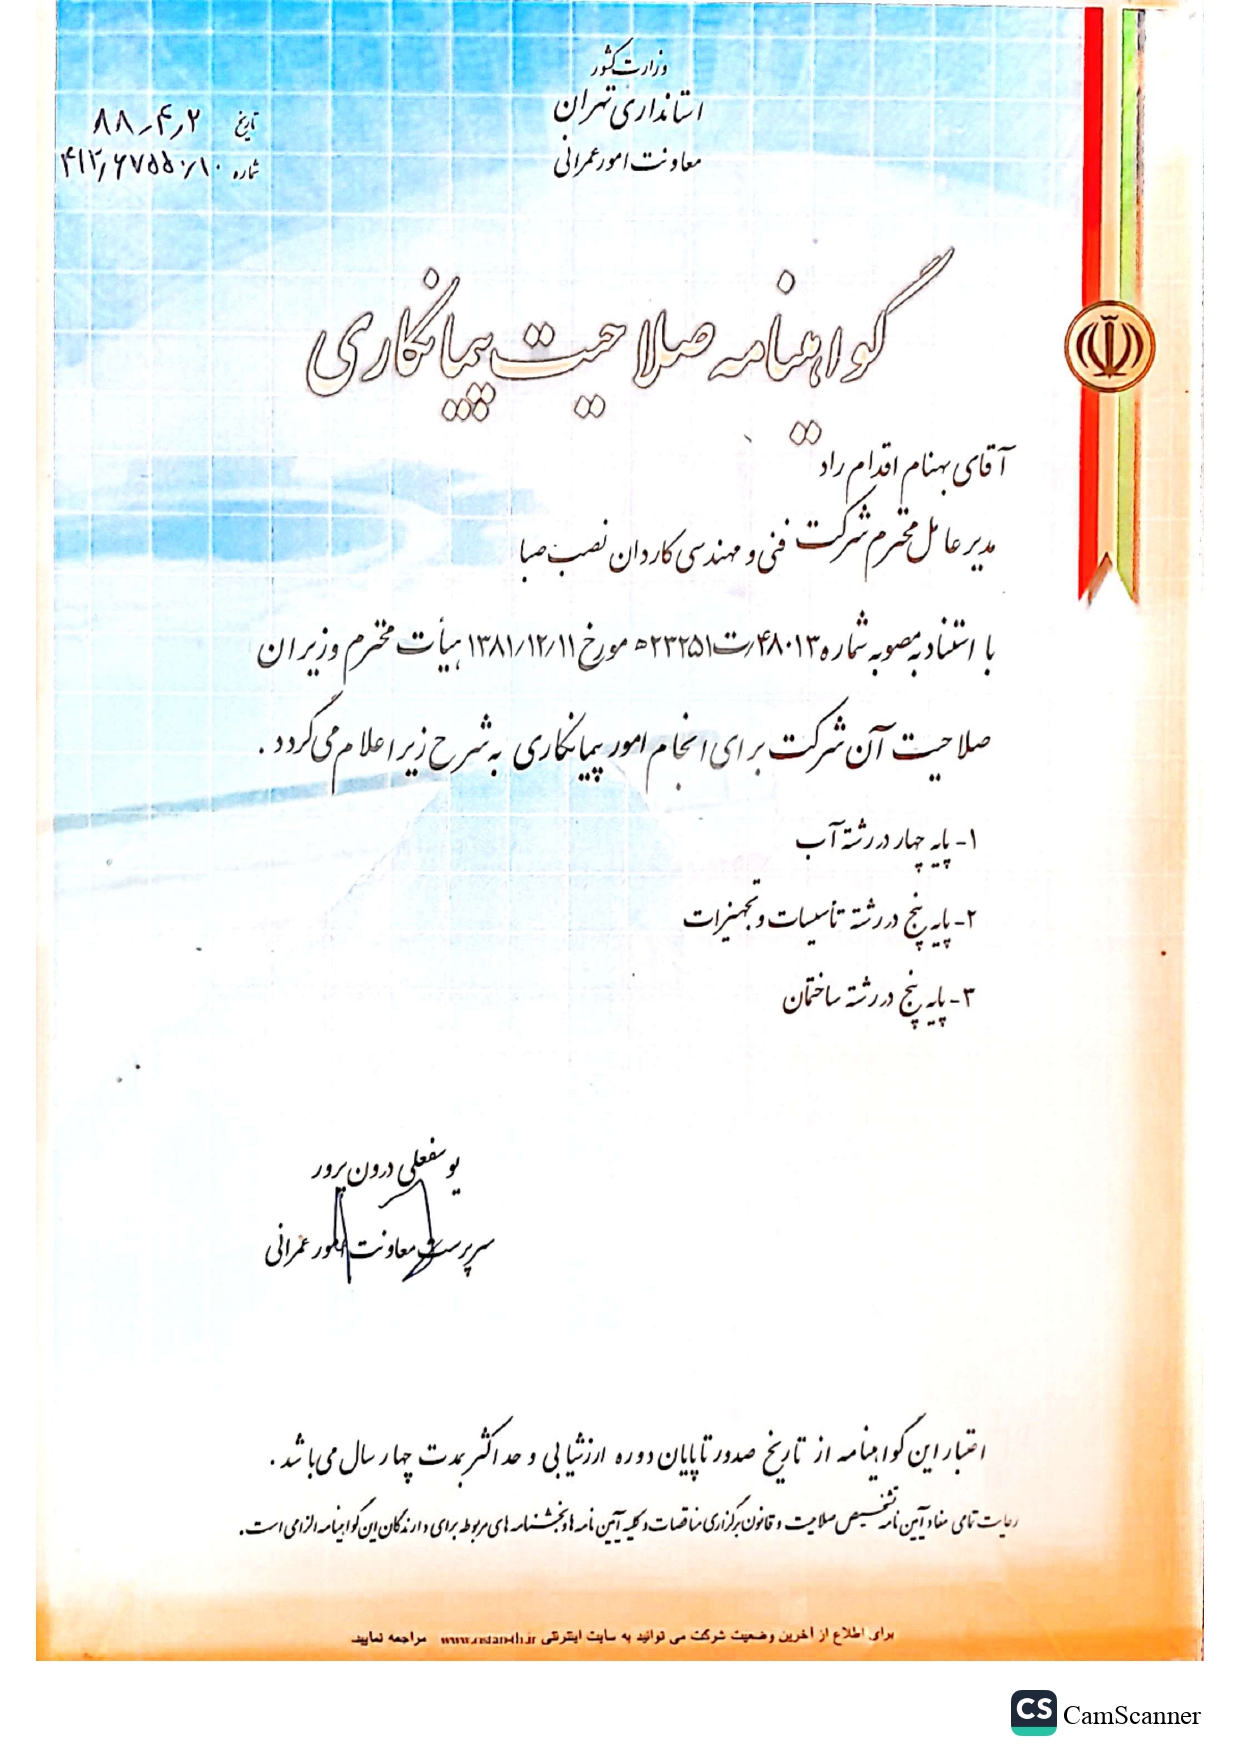 وزارت کشور
استانداری تهران
معاونت امور عمرانی
تاریخ ۸۸٫۴٫۲
شماره
گواهینامه صلاحیت پیمانکاری
آقای بهنام اقدام راد
مدیر عامل محترم شرکت فنی و مهندسی کاردان نصب صبا
با استناد به مصوبه شماره ۴۸۰۱۳/ت۲۳۲۵۱ه مورخ ۱۳۸۱/۱۲/۱۱ هیأت محترم وزیران
صلاحیت آن شرکت برای انجام امور پیمانکاری به شرح زیر اعلام می گردد .
۱- پایه چهار در رشته آب
۲- پایه پنج در رشته تأسیسات و تجهیزات
۳- پایه پنج در رشته ساختمان
یوسفعلی درون پرور
سرپرست معاونت امور عمرانی
اعتبار این گواهینامه از تاریخ صدور تا پایان دوره ارزشیابی و حداکثر بمدت چهار سال می باشد .
رعایت تمامی مفاد آیین نامه تشخیص صلاحیت و قانون برگزاری مناقصات و کلیه آیین نامه ها و بخشنامه های مربوطه برای دارندگان این گواهینامه الزامی است .
برای اطلاع از آخرین وضعیت شرکت می توانید به سایت اینترنتی www.ostan-th.ir مراجعه نمایید
CS CamScanner